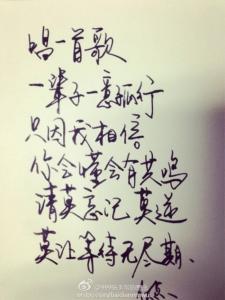 唱一首歌
一辈子一意孤行
只因我相信
你会懂会有共鸣
请莫忘记 莫
莫让等待无尽期、